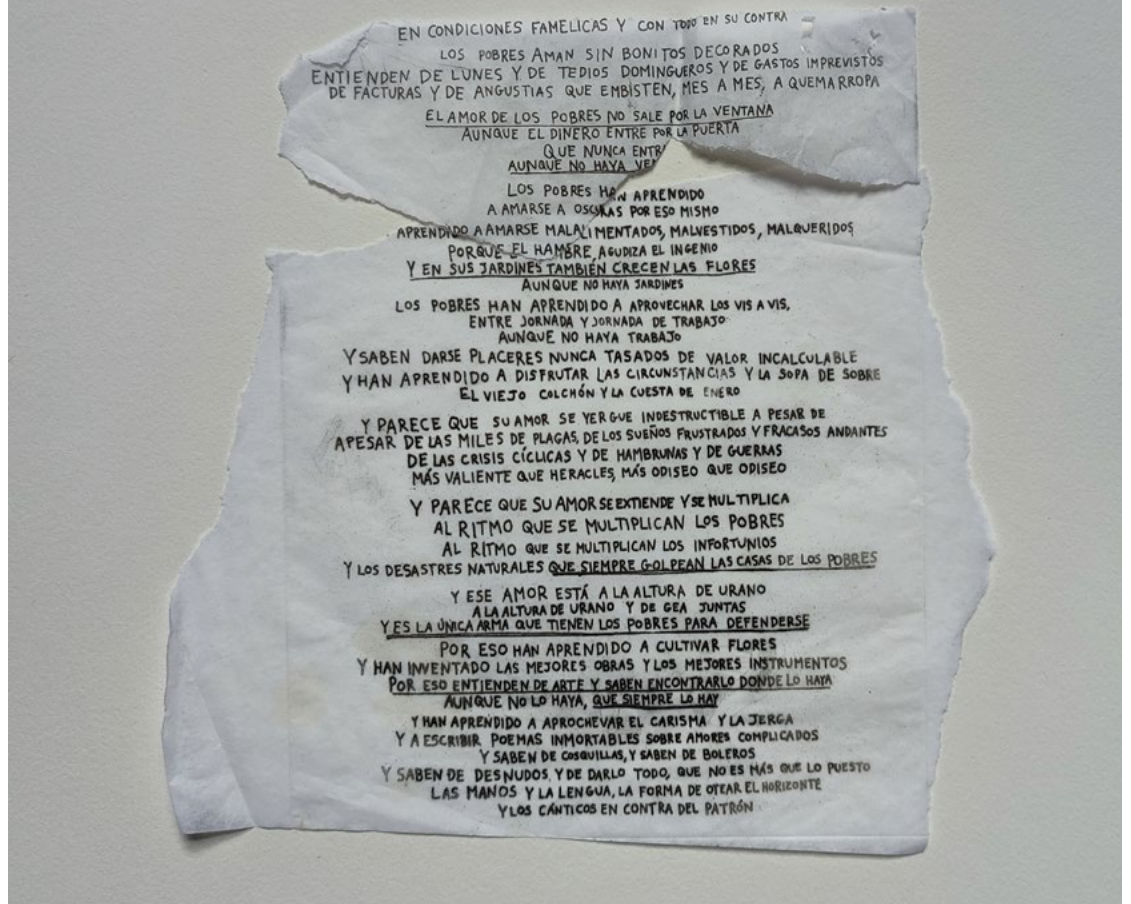 EN CONDICIONES FAMELICAS Y CON TODO EN SU CONTRA
LOS POBRES AMAN SIN BONITOS DECORADOS
ENTIENDEN DE LUNES Y DE TEDIOS DOMINGUEROS Y DE GASTOS IMPREVISTOS
DE FACTURAS Y DE ANGUSTIAS QUE EMBISTEN, MES A MES, A QUEMARROPA
EL AMOR DE LOS POBRES NO SALE POR LA VENTANA
AUNQUE EL DINERO ENTRE POR LA PUERTA
QUE NUNCA ENTR
AUNQUE NO HAYA VE
LOS POBRES HAN APRENDIDO
A AMARSE A OSCURAS POR ESO MISMO
APRENDIDO A AMARSE MALALIMENTADOS, MALVESTIDOS, MALQUERIDOS
PORQUE EL HAMBRE AGUDIZA EL INGENIO
Y EN SUS JARDINES TAMBIÉN CRECEN LAS FLORES
AUNQUE NO HAYA JARDINES
LOS POBRES HAN APRENDIDO A APROVECHAR LOS VIS A VIS,
ENTRE JORNADA Y JORNADA DE TRABAJO
AUNQUE NO HAYA TRABAJO
Y SABEN DARSE PLACERES NUNCA TASADOS DE VALOR INCALCULABLE
Y HAN APRENDIDO A DISFRUTAR LAS CIRCUNSTANCIAS Y LA SOPA DE SOBRE
EL VIEJO COLCHÓN Y LA CUESTA DE ENERO
Y PARECE QUE SU AMOR SE YERGUE INDESTRUCTIBLE A PESAR DE
APESAR DE LAS MILES DE PLAGAS, DE LOS SUEÑOS FRUSTRADOS Y FRACASOS ANDANTES
DE LAS CRISIS CÍCLICAS Y DE HAMBRUNAS Y DE GUERRAS
MÁS VALIENTE QUE HERACLES, MÁS ODISEO QUE ODISEO
Y PARECE QUE SU AMOR SE EXTIENDE Y SE MULTIPLICA
AL RITMO QUE SE MULTIPLICAN LOS POBRES
AL RITMO QUE SE MULTIPLICAN LOS INFORTUNIOS
Y LOS DESASTRES NATURALES QUE SIEMPRE GOLPEAN LAS CASAS DE LOS POBRES
Y ESE AMOR ESTÁ A LA ALTURA DE URANO
A LA ALTURA DE URANO Y DE GEA JUNTAS
Y ES LA ÚNICA ARMA QUE TIENEN LOS POBRES PARA DEFENDERSE
POR ESO HAN APRENDIDO A CULTIVAR FLORES
Y HAN INVENTADO LAS MEJORES OBRAS Y LOS MEJORES INSTRUMENTOS
POR ESO ENTIENDEN DE ARTE Y SABEN ENCONTRARLO DONDE LO HAYA
AUNQUE NO LO HAYA, QUE SIEMPRE LO HAY
Y HAN APRENDIDO A APROCHEVAR EL CARISMA Y LA JERGA
Y A ESCRIBIR POEMAS INMORTABLES SOBRE AMORES COMPLICADOS
Y SABEN DE COSQUILLAS, Y SABEN DE BOLEROS
Y SABEN DE DESNUDOS Y DE DARLO TODO, QUE NO ES MÁS QUE LO PUESTO
LAS MANOS Y LA LENGUA, LA FORMA DE OTEAR EL HORIZONTE
Y LOS CÁNTICOS EN CONTRA DEL PATRÓN